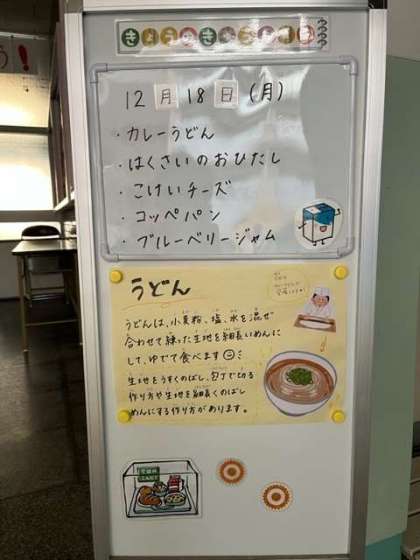 きょうのきゅうしょく
12月18日(月)
・カレーうどん
・はくさいのおひたし
・こけいチーズ
・コッペパン
・ブルーベリージャム
うどん
うどんは、小麦粉、塩、水を混ぜ
合わせて練った生地を細長いめんに
して、ゆでて食べます
生地をうすくのばし、包丁で切る
作り方や生地を細長くのばし
めんにする作り方があります。